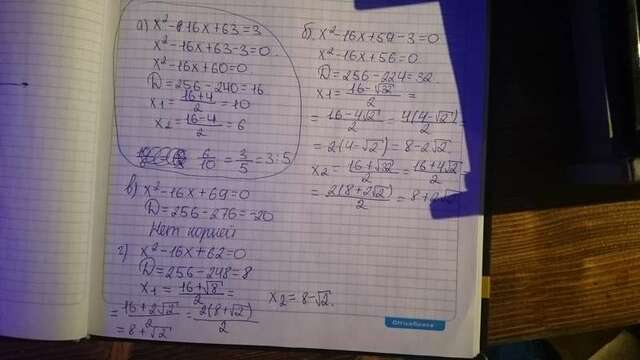 а) x² - 16x + 63 = 3
x² - 16x + 63 - 3 = 0
x² - 16x + 60 = 0
D = 256 - 240 = 16
x₁ = (16+4)/2 = 10
x₂ = (16-4)/2 = 6
6/10 = 3/5 = 3:5
б) x² - 16x + 59 - 3 = 0
x² - 16x + 56 = 0
D = 256 - 224 = 32
x₁ = (16-√32)/2 =
= (16-4√2)/2 = 4(4-√2)/2 =
= 2(4-√2) = 8-2√2
x₂ = (16+√32)/2 = (16+4√2)/2
= 2(8+2√2)/2 = 8+2√2
в) x² - 16x + 69 = 0
D = 256 - 276 = -20
Нет корней
г) x² - 16x + 62 = 0
D = 256 - 248 = 8
x₁ = (16+√8)/2 =
= (16+2√2)/2 = 2(8+√2)/2
= 8+√2
x₂ = 8-√2